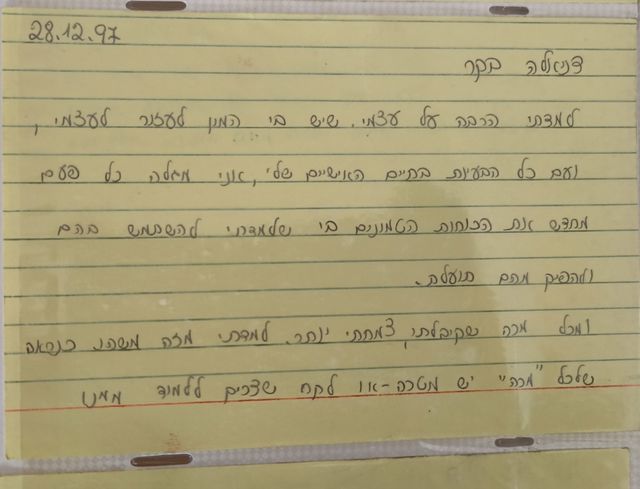 28.12.97
דניאלה בקר
למדתי הרבה על עצמי. שיש בי המון לעזור לעצמי,
ועם כל הבעיות בחיים האישיים שלי, אני מגלה כל פעם
מחדש את הכוחות הטמונים בי שלמדתי להשתמש בהם
ולהפיק מהם תועלת.
ומכל מכה שקיבלתי, צמחתי יותר. למדתי מזה משהו. כנראה
שלכל "מכה" יש מטרה-או לקח שצריכים ללמוד ממנו